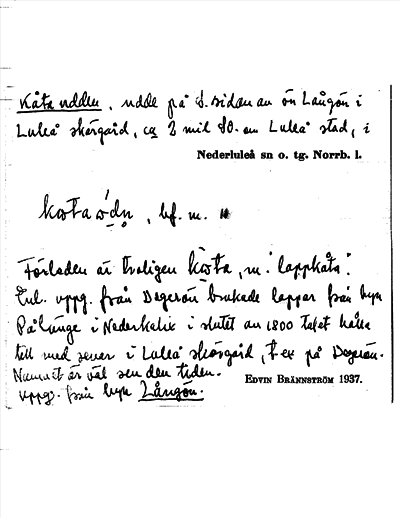 Kåtaudden, udde på S. sidan av ön Långön i
Luleå skärgård, ca 2 mil SO. om Luleå stad, i
Nederluleå sn o. tg. Norrb. l.
bf. m.
Förleden är troligen kåta, m. "lappkåta".
Enl. uppg. från Degerön brukade lappar från byn
Pålänge i Nederkalix i slutet av 1800 talet hålla
till med renar i Luleå skärgård, t. ex på Degerön.
Namnet är väl sen den tiden.
EDVIN BRÄNNSTRÖM 1937.
Uppg. från byn Långön.